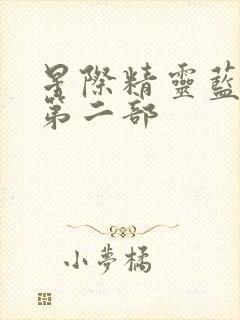 星際精靈藍
第二部
小夢橘